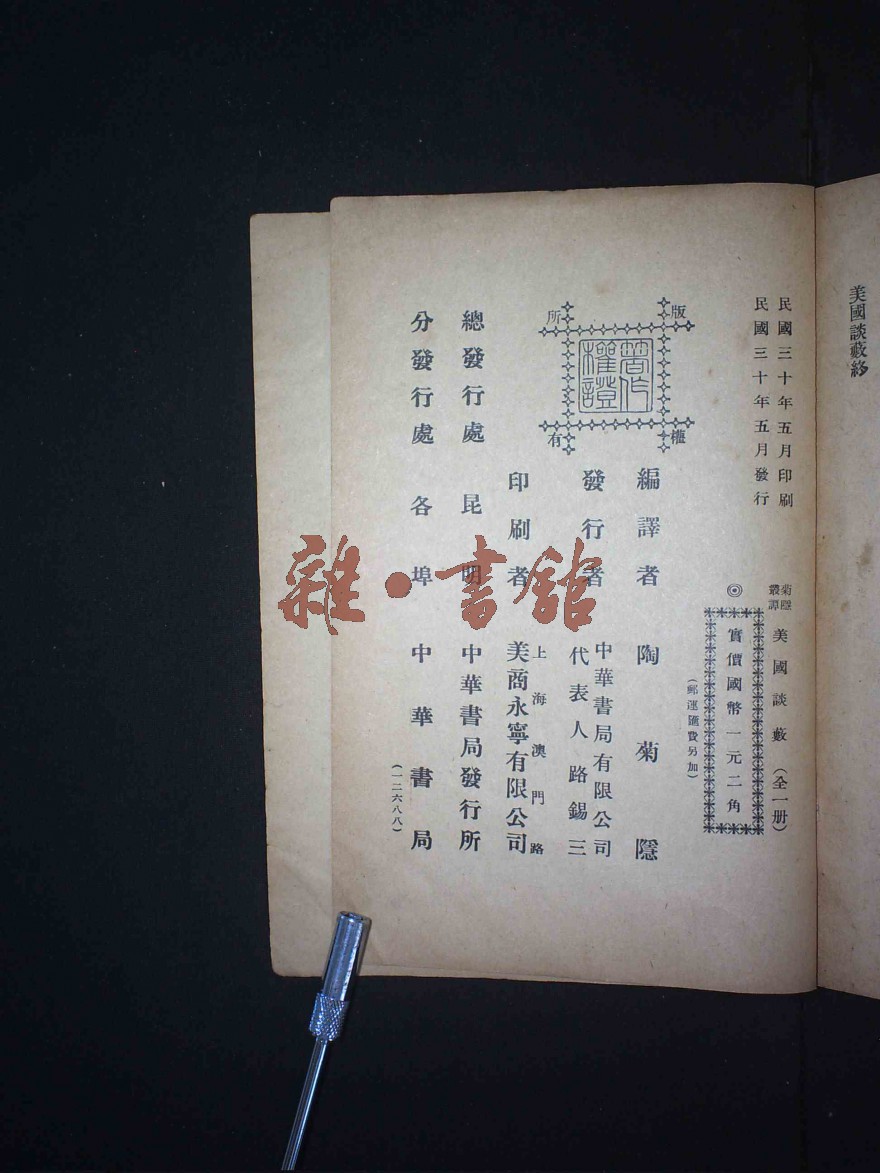 美國談藪終
民國三十年五月印刷
民國三十年五月發行
菊隱叢譚 美國談藪（全一册）
◎
實價國幣一元二角
（郵運匯費另加）
版權所有
著作權證
編譯者 陶菊隱
發行者 中華書局有限公司
代表人路錫三
印刷者 上海澳門路
美商永寧有限公司
總發行處 昆明 中華書局發行所
分發行處 各埠 中華書局
（一二六八八）
雜·書館